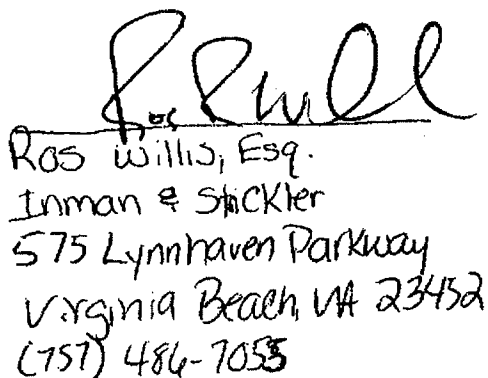 Ros Willis, Esq.
Inman & Strickler
575 Lynnhaven Parkway
Virginia Beach, VA 23452
(757) 486-7055